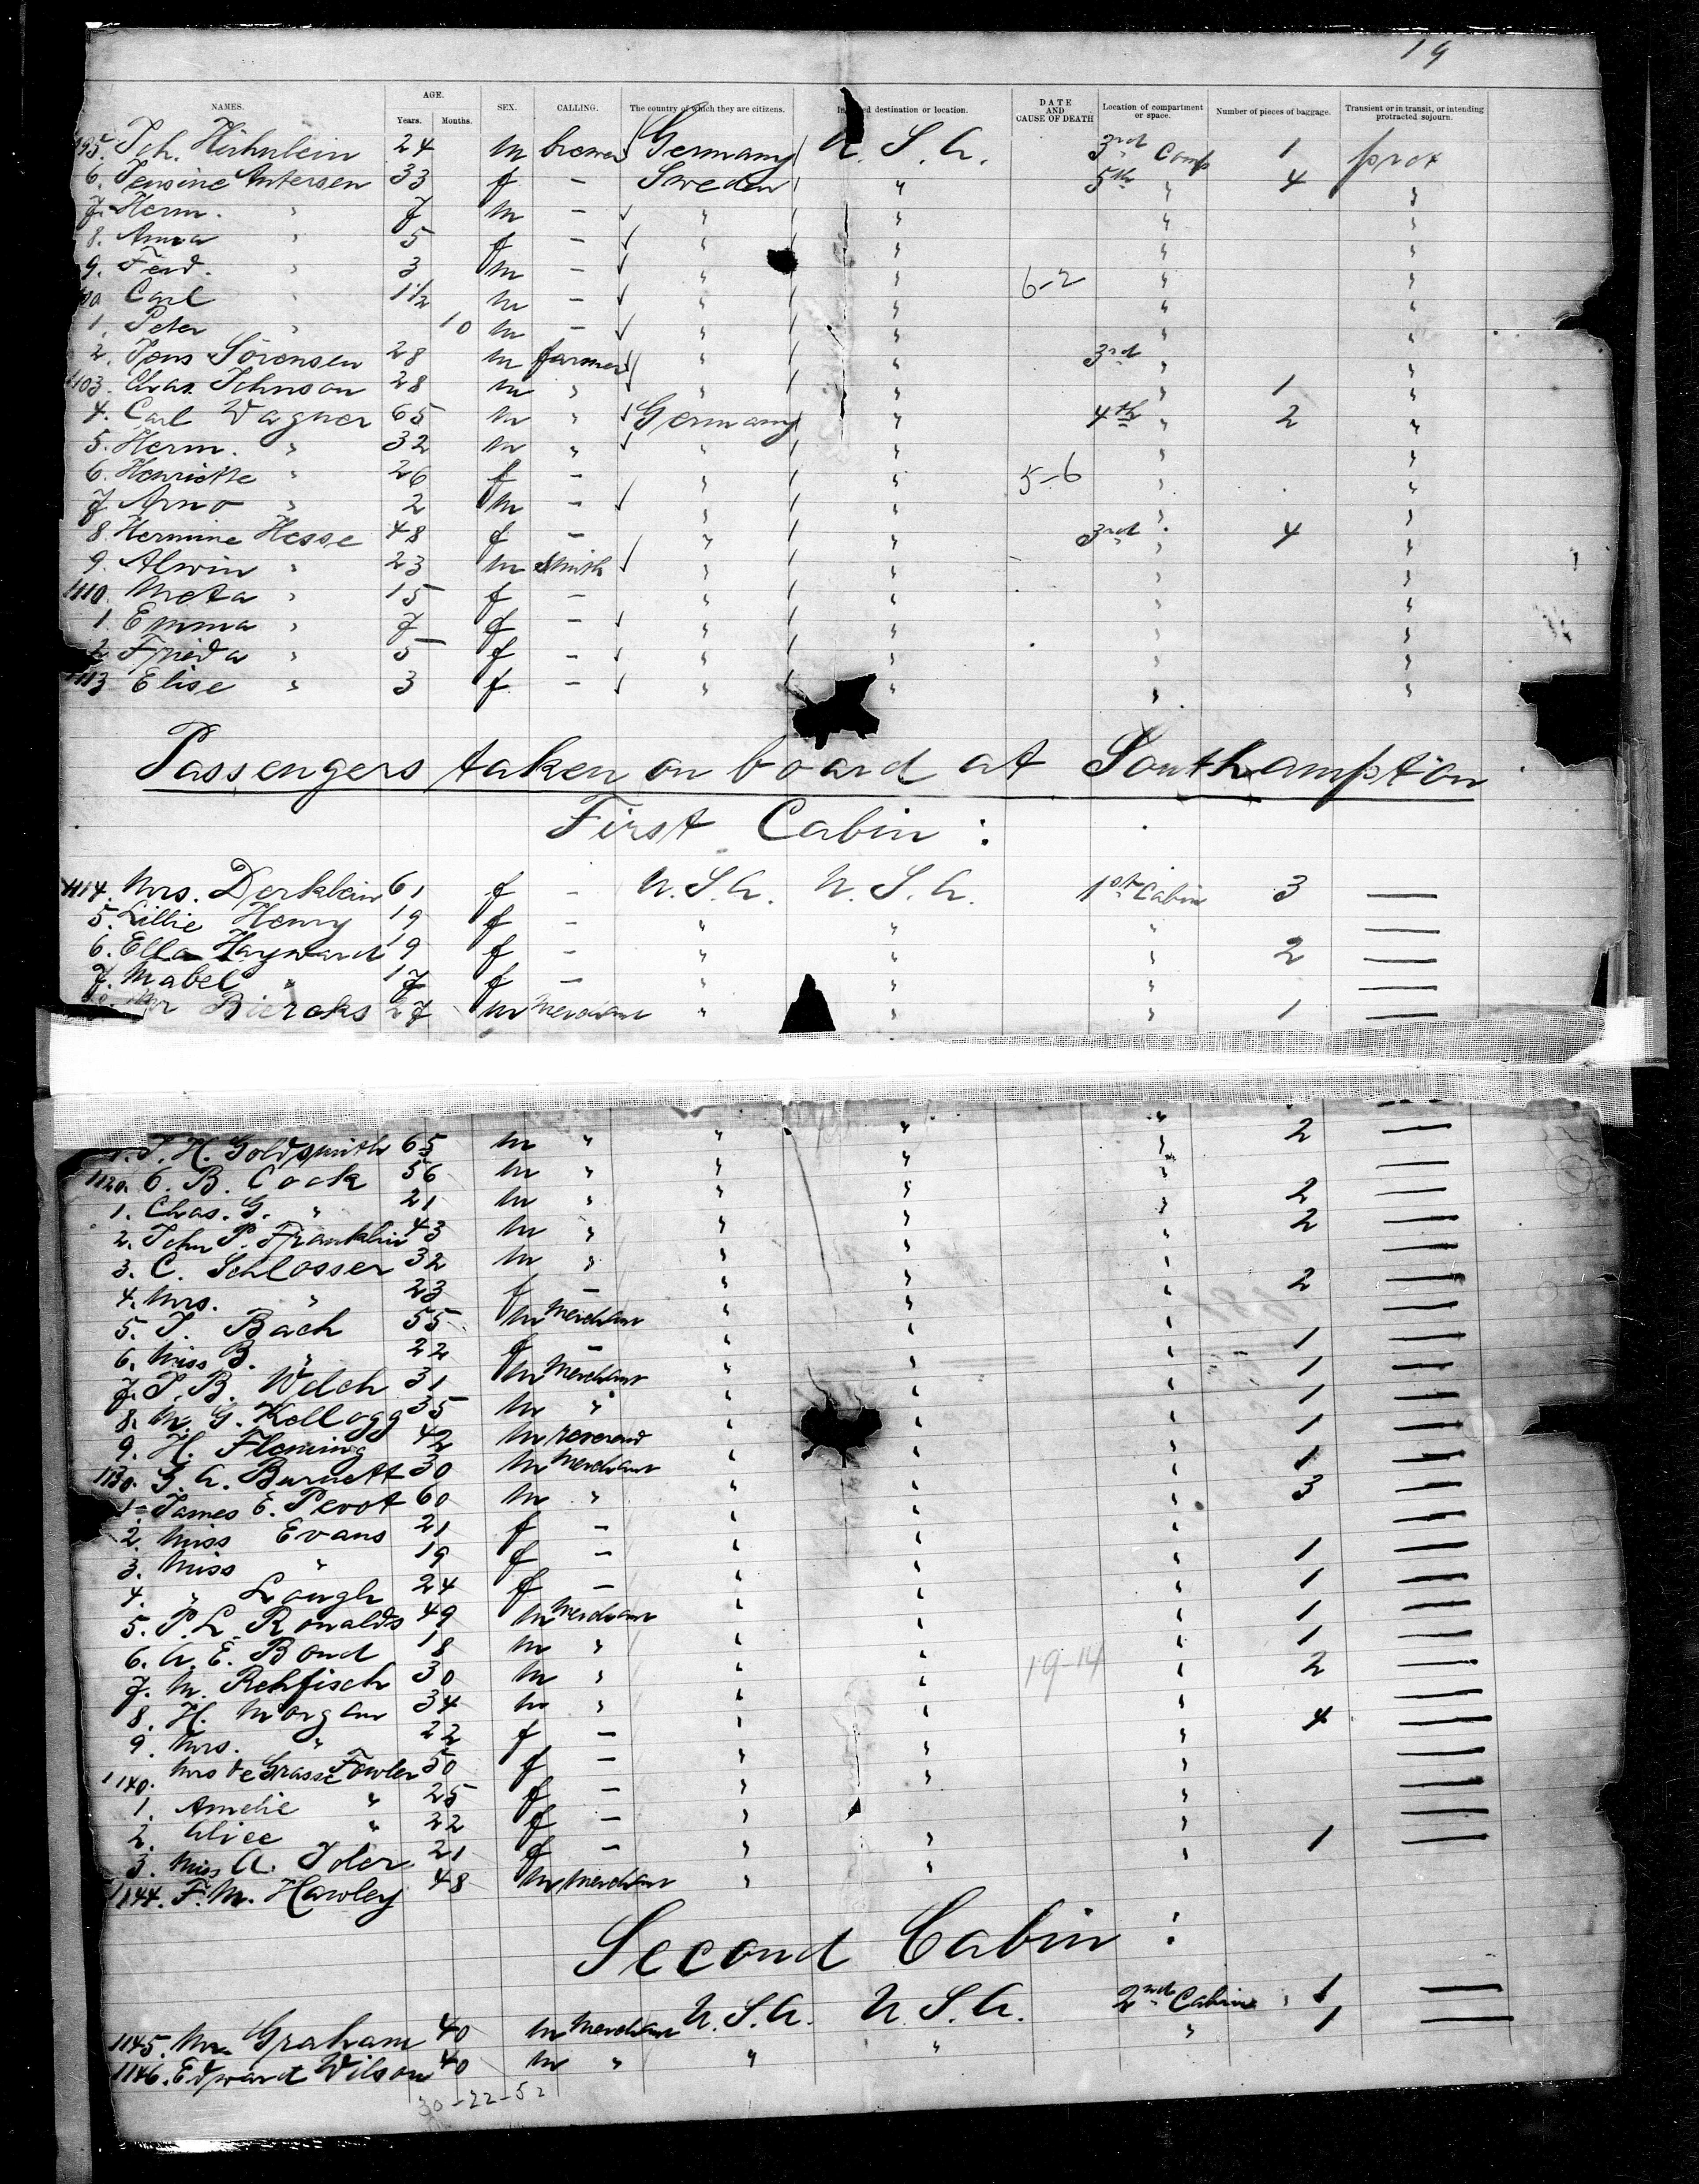 19
NAMES. AGE. Years. Months. SEX. CALLING. The country of which they are citizens. destination or location. DATE AND CAUSE OF DEATH Location of compartment or space. Number of pieces of baggage. Transient or in transit, or intending protracted sojourn.
Joh. 24 m brewer Germany U. S. A. 3rd Comp 1 prot
6. Jensine Antersen 33 f - Sweden " 5th " 4 "
7. Herm. " 7 m - " " " "
8. Anna " 5 f - " " " "
9. Ferd. " 3 m - " " " "
Carl " 1½ m - " " 6-2 " "
1. Peter " 10 m - " " " "
2. Jons Sörensen 28 m farmer " " 3rd " "
1103. Chas. Johnson 28 m " " " " 1 "
4. Carl Wagner 65 m " Germany " 4th " 2 "
5. Herm. " 32 m " " " " "
6. Henriette " 26 f - " " 5-6 " "
7 Arno " 2 m - " " " "
8. Hermine Hesse 48 f - " " 3rd " 4 "
9. Alwin " 23 m smith " " " "
1110. Meta " 15 f - " " " "
1. Emma " 7 f - " " " "
2. Frieda " 5 f - " " " "
1113 Elise " 3 f - " " " "
Passengers taken on board at Southampton
First Cabin :
1114. Mrs. Derklein 61 f - U.S.A. U.S.A. 1st Cabin 3 —
5. Lillie Henry 19 f - " " " —
6. Ella Hayward 19 f - " " " 2 —
7. Mabel " 17 f - " " " —
Mr 27 m merchant " " " 1 —
J. H. Goldsmith 65 m " " " " 2 —
1120. O. B. Cook 56 m " " " " —
1. Chas. G. " 21 m " " " " 2 —
2. John P. Franklin 43 m " " " " 2 —
3. C. Schlosser 32 m " " " " —
4. Mrs. " 23 f - " " " 2 —
5. J. Bach 55 m merchant " " " —
6. Miss B. " 22 f - " " " 1 —
7. J. B. Welch 31 m merchant " " " 1 —
8. M. G. Kellogg 35 m " " " " 1 —
9. H. Fleming 42 m reverend " " " 1 —
1130. G. A. Burnett 30 m merchant " " " 1 —
1. James E. Perot 60 m " " " " 3 —
2. Miss Evans 21 f - " " " —
3. Miss " 19 f - " " " 1 —
4. " Lough 24 f - " " " 1 —
5. P. L. Ronalds 49 m merchant " " " 1 —
6. A. E. Bond 18 m " " " " 1 —
7. M. Rehfisch 30 m " " " 19-14 " 2 —
8. H. Morgan 34 m " " " " —
9. Mrs. " 22 f - " " " 4 —
1140. Mrs de Grasse Fowler 50 f - " " " —
1. Amelie " 25 f - " " " —
2. Alice " 22 f - " " " —
3. Miss A. Idler 21 f - " " " 1 —
1144. F. M. Hawley 48 m merchant " "
Second Cabin :
1145. Mr. Graham 40 m merchant U.S.A. U.S.A. 2nd Cabin 1 —
1146. Edward Wilson 40 m " " " " 1 —
30-22-52